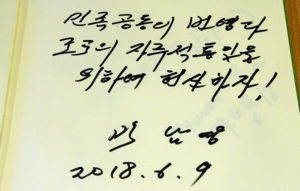 민족공동의 번영과
조국의 자주적통일을
위하여 헌신하자!
2018. 6. 9